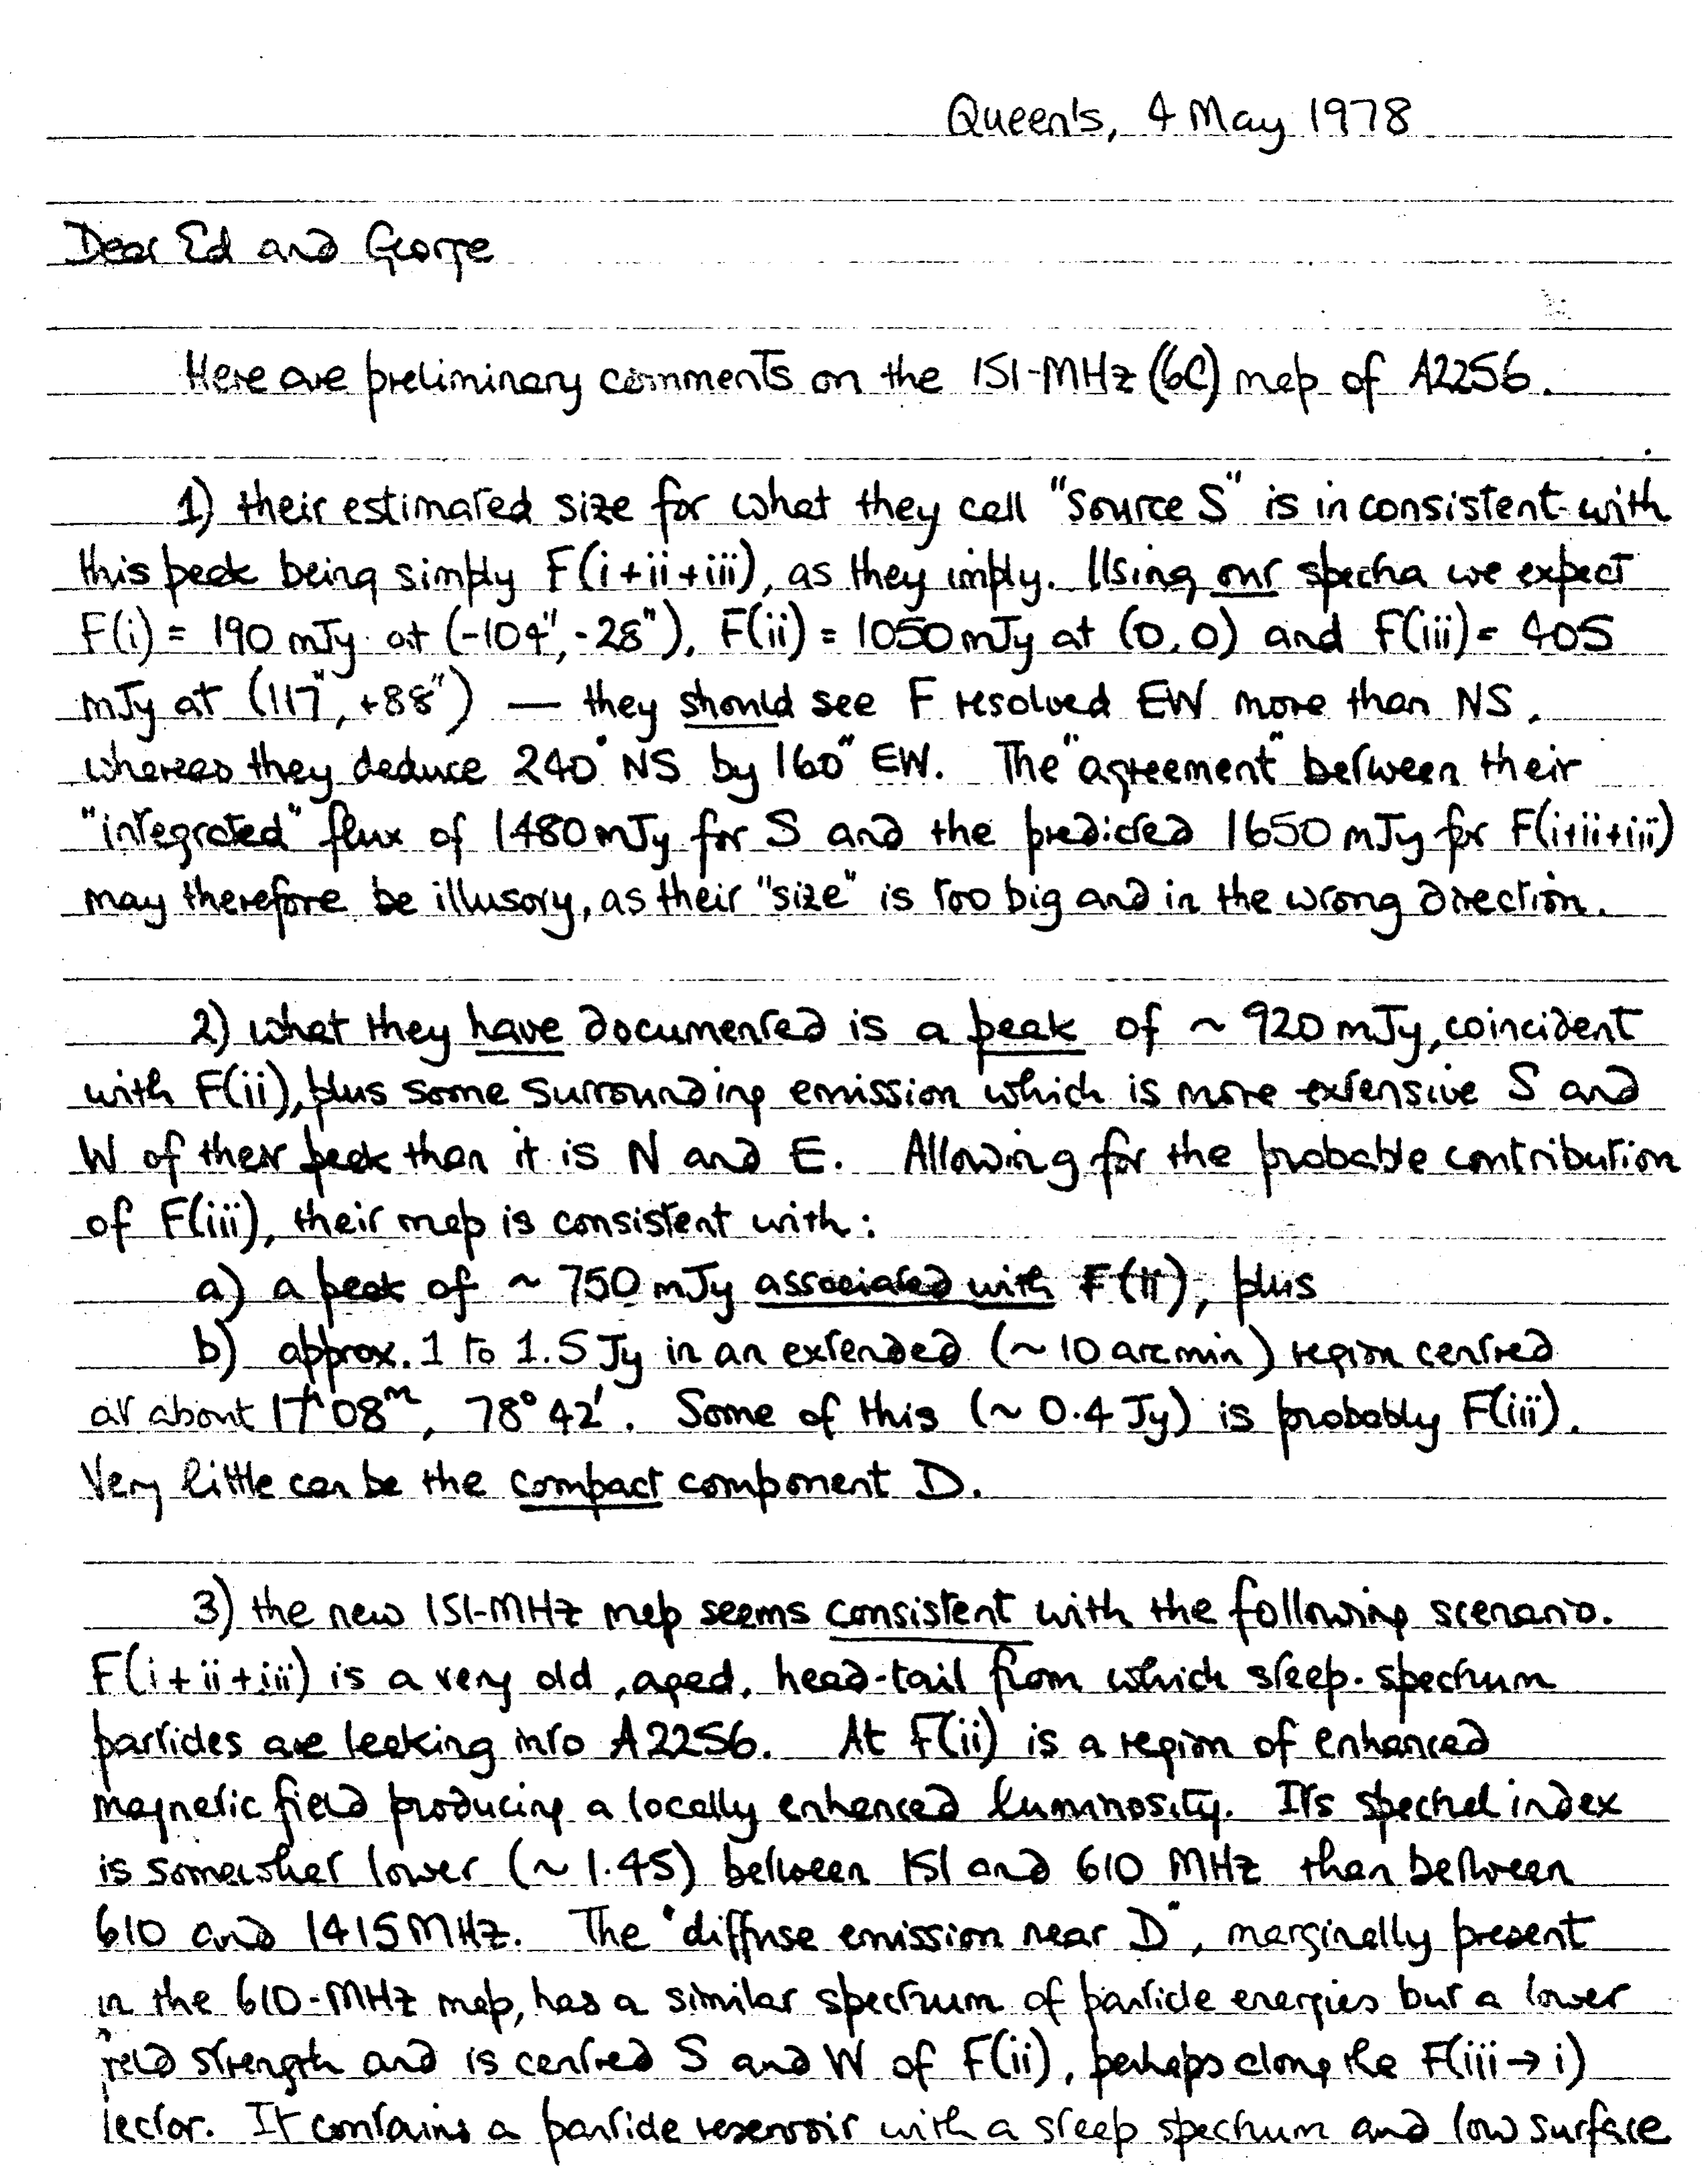 Queen's, 4 May 1978
Dear Ed and George
Here are preliminary comments on the 151-MHz (6C) map of A2256.
1) their estimated size for what they call "Source S" is inconsistent with
this peak being simply F(i+ii+iii), as they imply. Using our spectra we expect
F(i) = 190 mJy at (-104", -28"), F(ii) = 1050 mJy at (0,0) and F(iii) = 405
mJy at (117", +88") — they should see F resolved EW more than NS,
whereas they deduce 240" NS by 160" EW. The "agreement" between their
"integrated" flux of 1480 mJy for S and the predicted 1650 mJy for F(i+ii+iii)
may therefore be illusory, as their "size" is too big and in the wrong direction.
2) what they have documented is a peak of ~ 920 mJy, coincident
with F(ii), plus some surrounding emission which is more extensive S and
W of their peak than it is N and E. Allowing for the probable contribution
of F(iii), their map is consistent with:
a) a peak of ~ 750 mJy associated with F(ii), plus
b) approx. 1 to 1.5 Jy in an extended (~ 10 arcmin) region centred
at about 17h08m, 78° 42'. Some of this (~ 0.4 Jy) is probably F(iii).
Very little can be the compact component D.
3) the new 151-MHz map seems consistent with the following scenario.
F(i+ii+iii) is a very old, aged, head-tail from which steep-spectrum
particles are leaking into A2256. At F(ii) is a region of enhanced
magnetic field producing a locally enhanced luminosity. Its spectral index
is somewhat lower (~ 1.45) between 151 and 610 MHz than between
610 and 1415 MHz. The "diffuse emission near D", marginally present
in the 610-MHz map, has a similar spectrum of particle energies but a lower
field strength and is centred S and W of F(ii), perhaps along the F(iii→i)
vector. It contains a particle reservoir with a steep spectrum and low surface